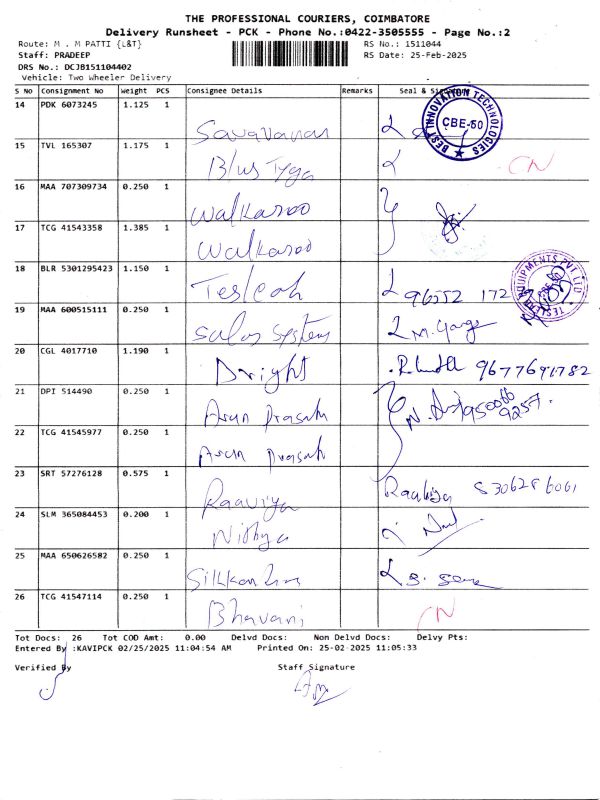 THE PROFESSIONAL COURIERS, COIMBATORE
Delivery Runsheet - PCK - Phone No.:0422-3505555 - Page No.:2
Route: M . M PATTI {L&T}
RS No.: 1511044
Staff: PRADEEP
RS Date: 25-Feb-2025
DRS No.: DCJB151104402
Vehicle: Two Wheeler Delivery
S No Consignment No Weight PCS Consignee Details Remarks Seal & Signature
14 PDK 6073245 1.125 1
Saravanan
BEST INNOVATION TECHNOLOGIES
CBE-50
15 TVL 165307 1.175 1
CN
16 MAA 707309734 0.250 1
Walkaroo
17 TCG 41543358 1.385 1
Walkaroo
18 BLR 5301295423 1.150 1
Tesleah 96552 172
EQUIPMENTS PVT LTD
19 MAA 600515111 0.250 1
Salos Systems
20 CGL 4017710 1.190 1
Dright 9677691782
21 DPI 514490 0.250 1
Arun Prasath 950066
9257
22 TCG 41545977 0.250 1
Arun Prasath
23 SRT 57276128 0.575 1
Raaviya
24 SLM 365084453 0.200 1
Nithya
25 MAA 650626582 0.250 1
26 TCG 41547114 0.250 1
Bhavani CN
Tot Docs: 26 Tot COD Amt: 0.00 Delvd Docs: Non Delvd Docs: Delvy Pts:
Entered By :KAVIPCK 02/25/2025 11:04:54 AM Printed On: 25-02-2025 11:05:33
Verified By Staff Signature